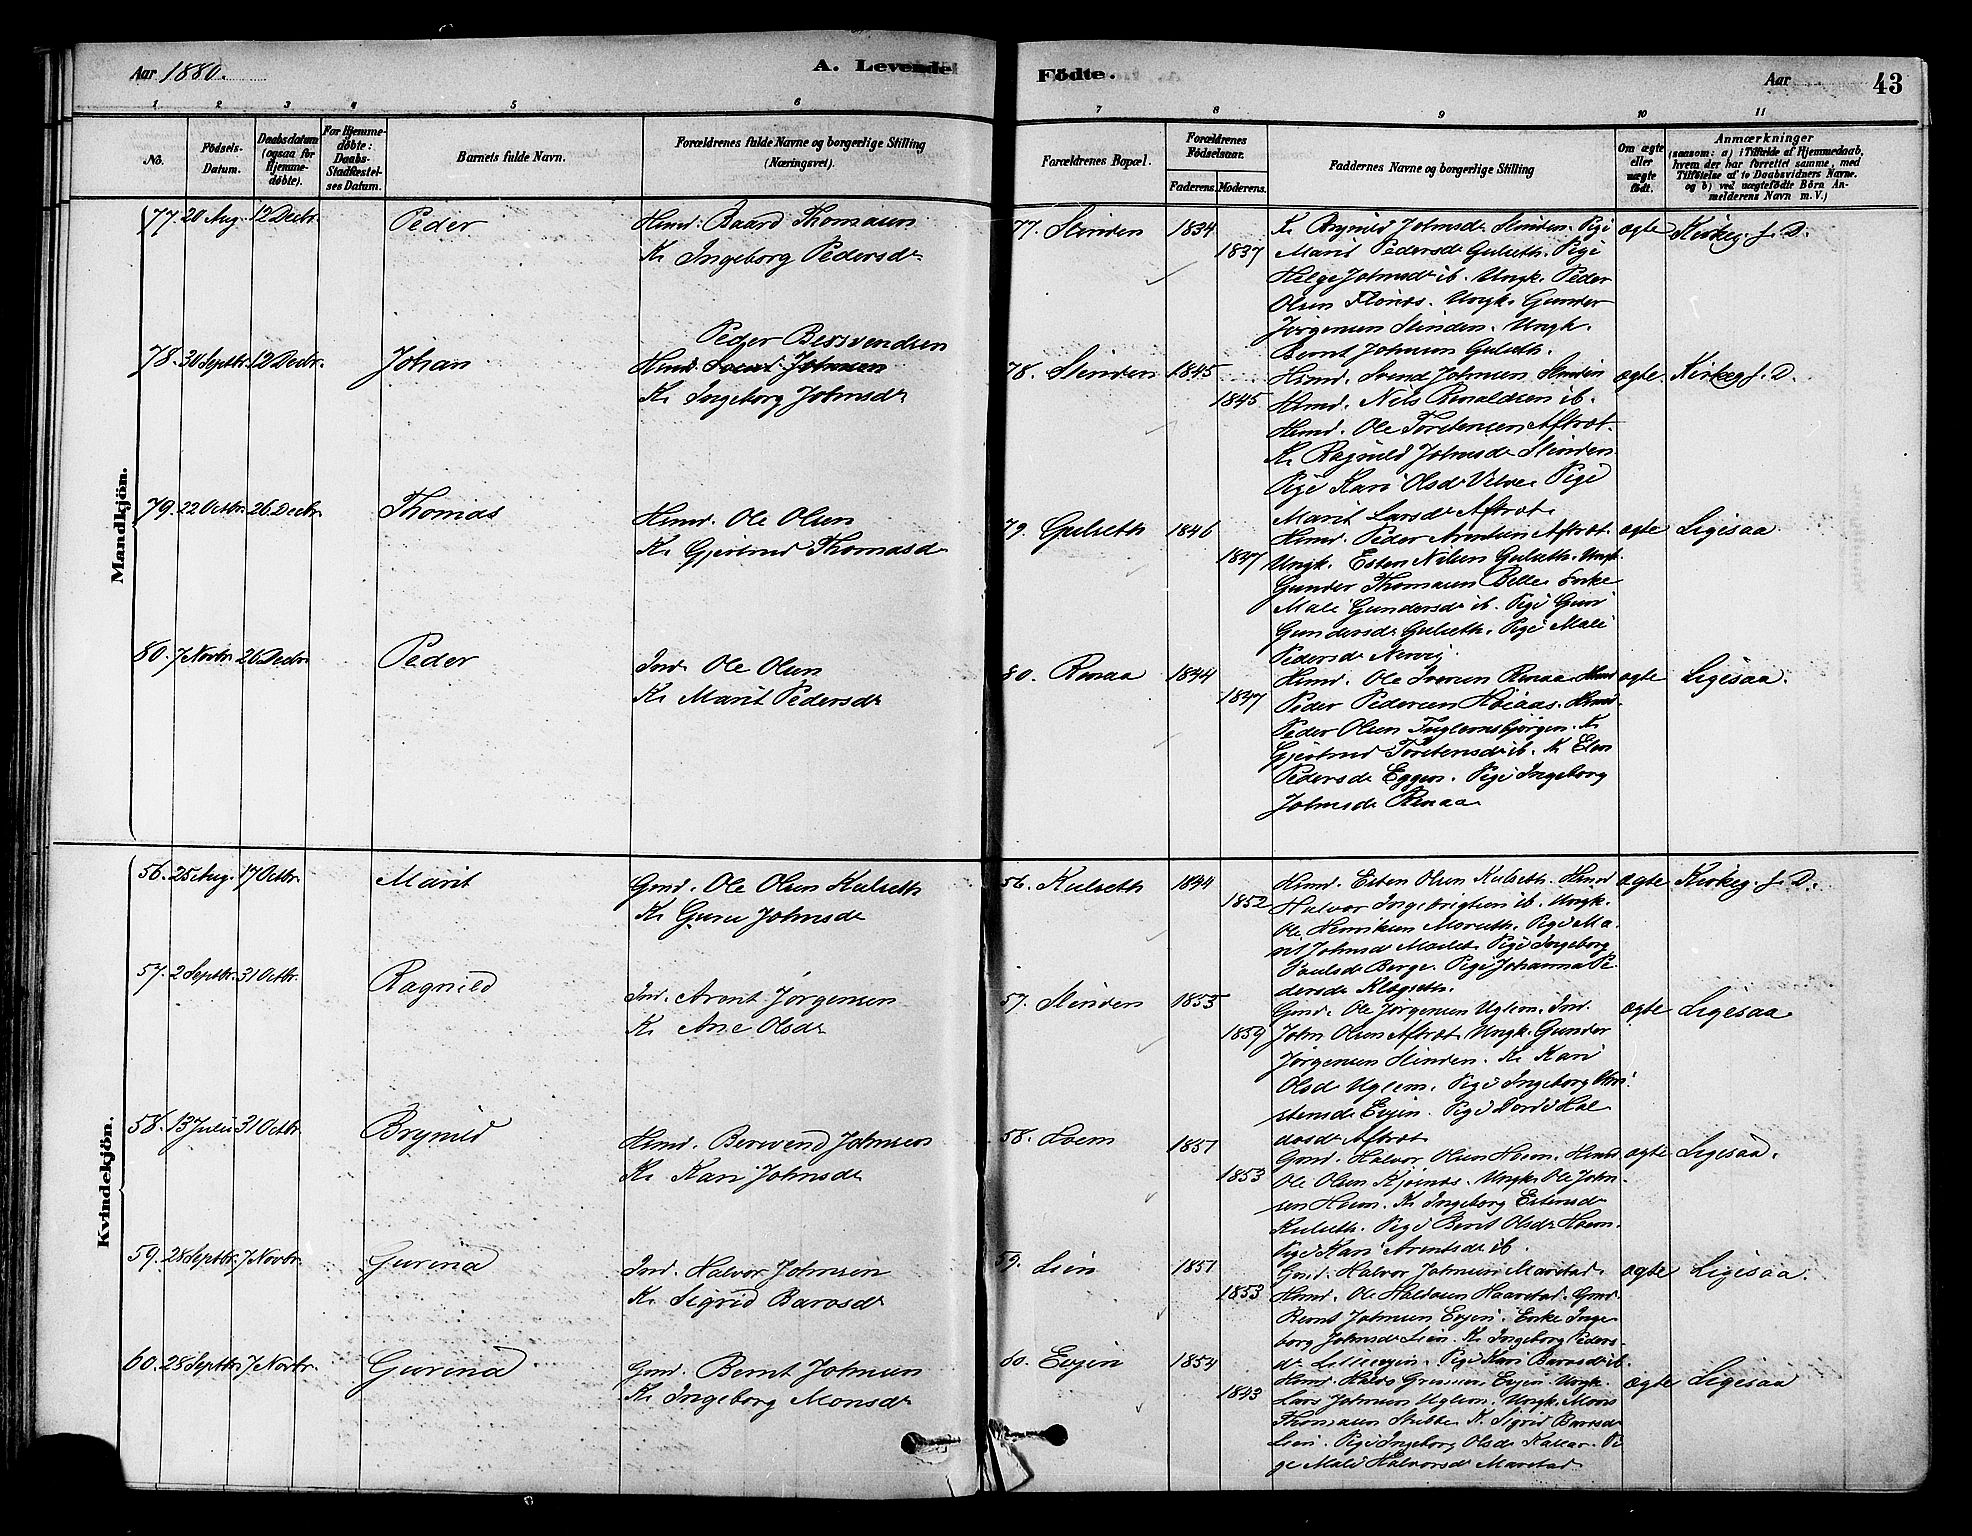 Aar 1880. A. Levende Födte. Aar 43
1 2 3 4 5 6 7 8 9 10 11
No. Födsels-Datum. Daabsdatum (ogsaa for Hjemmedöbte). For Hjemmedöbte: Daabs-Stadfæstelses Datum. Barnets fulde Navn. Forældrenes fulde Navne og borgerlige Stilling (Næringsvei). Forældrenes Bopæl. Forældrenes Födselsaar. Faderens. Moderens. Faddernes Navne og borgerlige Stilling Om ægte eller uægte födt. Anmærkninger (saasom: a) i Tilfælde af Hjemmedaab, hvem der har forrettet samme, med Tilföielse af to Daabsvidners Navne. og b) ved uægtefödte Börn Anmelderens Navn m. V.)
Mandkjön.
77. 20 Aug. 12 Decbr. Peder Hmd. Baard Thomasen
K. Ingeborg Pedersdr
77. Slinden 1834 1837
K. Ragnild Johnsdr Slinden. Pige
Marit Pedersdr Gulseth. Pige
Helge Johnsdr ib. Ungk. Peder
Olsen Flonæs. Ungk. Gunder
Jørgensen Slinden. Ungk.
Bernt Johnsen Gulseth.
ægte Kirkeg. f. D.
78. 30 Septbr. 12 Decbr. Johan Peder Bersvendsen
Hmd. Svend Johnsen
K. Ingeborg Johnsdr
78. Slinden 1845 1845
Hmd. Svend Johnsen Slinden
Hmd. Nils Renaldsen ib.
Hmd. Ole Torstensen Aftret.
K. Ragnild Johnsdr Slinden
Pige Kari Olsdr Velve. Pige
Marit Larsdr Aftret.
ægte. Kirkeg. f. D.
79. 22 Octbr. 26 Decbr. Thomas Hmd. Ole Olsen
K. Gjertrud Thomasdr
79. Gulseth 1846 1847
Hmd. Peder Arntsen Aftret.
Ungk. Esten Nilsen Gulseth. Ungk.
Gunder Thomasen Belle. Enke
Mali Gundersdr ib. Pige Guri
Gundersdr Gulseth. Pige Mali
Pedersdr Nervig.
ægte Ligesaa
80. 7 Novbr. 26 Decbr. Peder Ind. Ole Olsen
K. Marit Pedersdr
80. Renaa 1844 1847
Hmd. Ole Iversen Renaa. Hmd
Peder Pedersen Høiaas. Hmd.
Peder Olsen Fuglemsbjørgen. K.
Gjertrud Torstensdr ib. K. Elen
Pedersdr Eggen. Pige Ingeborg
Johnsdr Renaa
ægte Ligesaa.
Kvindekjön.
56. 25 Aug. 17 Octbr. Marit Gmd. Ole Olsen Kulseth
K. Guru Johnsdr
56. Kulseth 1844 1852
Hmd. Esten Olsen Kulseth. Hmd
Halvor Ingebrigtsen ib. Ungk.
Ole Henriksen Morseth. Pige Ma-
rit Johnsdr Moslet. Pige Ingeborg
Poulsdr Berge. Pige Johanna Pe-
dersdr Klegseth.
ægte Kirkeg. f. D.
57. 2 Septbr. 31 Octbr. Ragnild Ind. Arent Jørgensen
K. Ane Olsdr
57. Slinden 1853 1859
Gmd. Ole Jørgensen Uglem. Ind.
John Olsen Aftret. Ungk. Gunder
Jørgensen Slinden. K. Kari
Olsdr Uglem. Pige Ingeborg
stensdr Evjen. Pige Dordi Hal
dosdr Aftret
ægte Ligesaa
58. 13 Juli 31 Octbr. Brynild Hmd. Bersvend Johnsen
K. Kari Johnsdr
58. Hoem 1851 1853
Gmd. Halvor Olsen Hoem. Hmd
Ole Olsen Kjønæs. Ungk. Ole John-
sen Hoem. K. Ingeborg Estensdr
Kulseth. Pige Berit Olsdr Hoem.
Pige Kari Arentsdr ib.
ægte Ligesaa.
59. 28 Septbr. 7 Novbr. Gurina Ind. Halvor Johnsen
K. Sigrid Barosdr
59. Lien 1851 1853
Gmd. Halvor Johnsen Marstad.
Hmd. Ole Haldosen Haarstad. Gmd.
Bernt Johnsen Evjen. Enke Inge-
borg Johnsdr Lien. K. Ingeborg Peders-
dr Lilleevjen. Pige Kari Barosdr ib.
ægte Ligesaa.
60. 28 Septbr. 7 Novbr. Gurina Gmd. Bernt Johnsen
K. Ingeborg Monsdr
60. Evjen 1854 1843
Hmd. Evjen. Ungk.
Lars Johnsen Uglem. Ungk. Mons
Thomasen Stubbe. K. Sigrid Barosdr
Lien. Pige Ingeborg Olsdr Kallar. Pi
ge Mali Halvorsdr Marstad
ægte Ligesaa